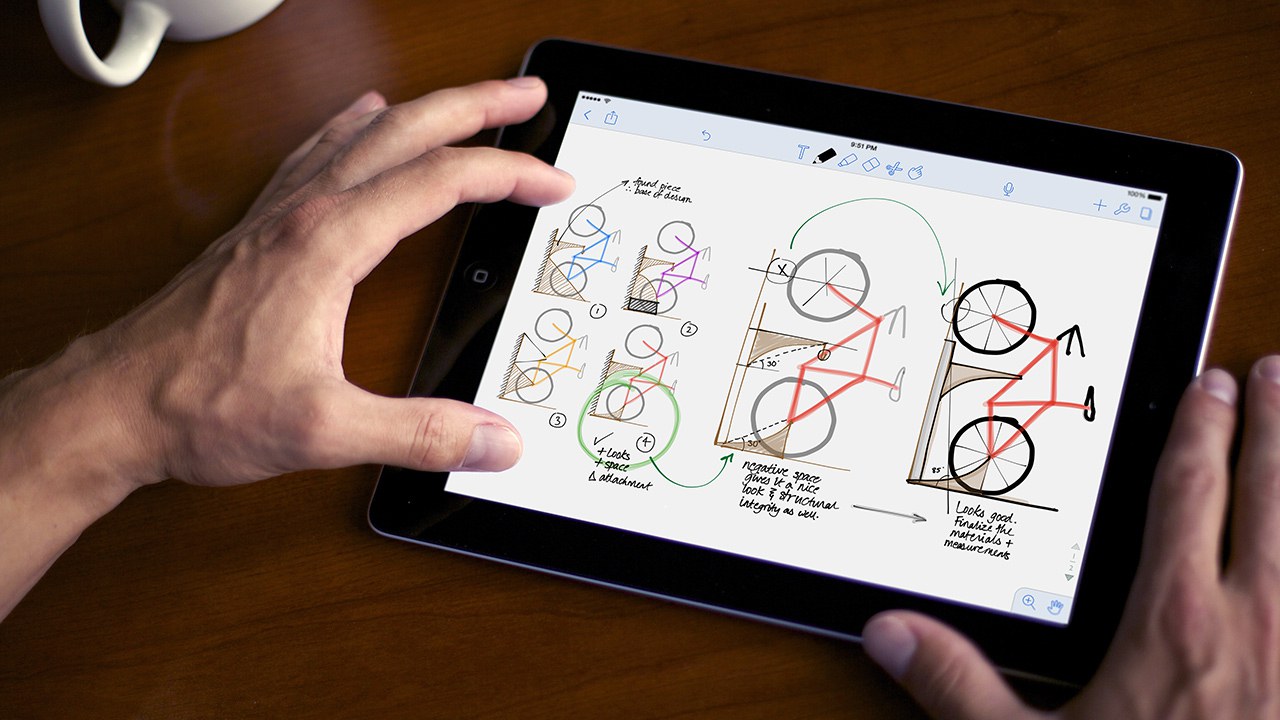 9:51 PM
100%
T
found piece
∴ base of design
1
2
3
4
✓
+ Looks
+ space
Δ attachment
X
30°
30°
negative space
gives it a nice
look & structural
integrity as well.
85°
Looks good.
Finalize the
materials +
measurements
1
2